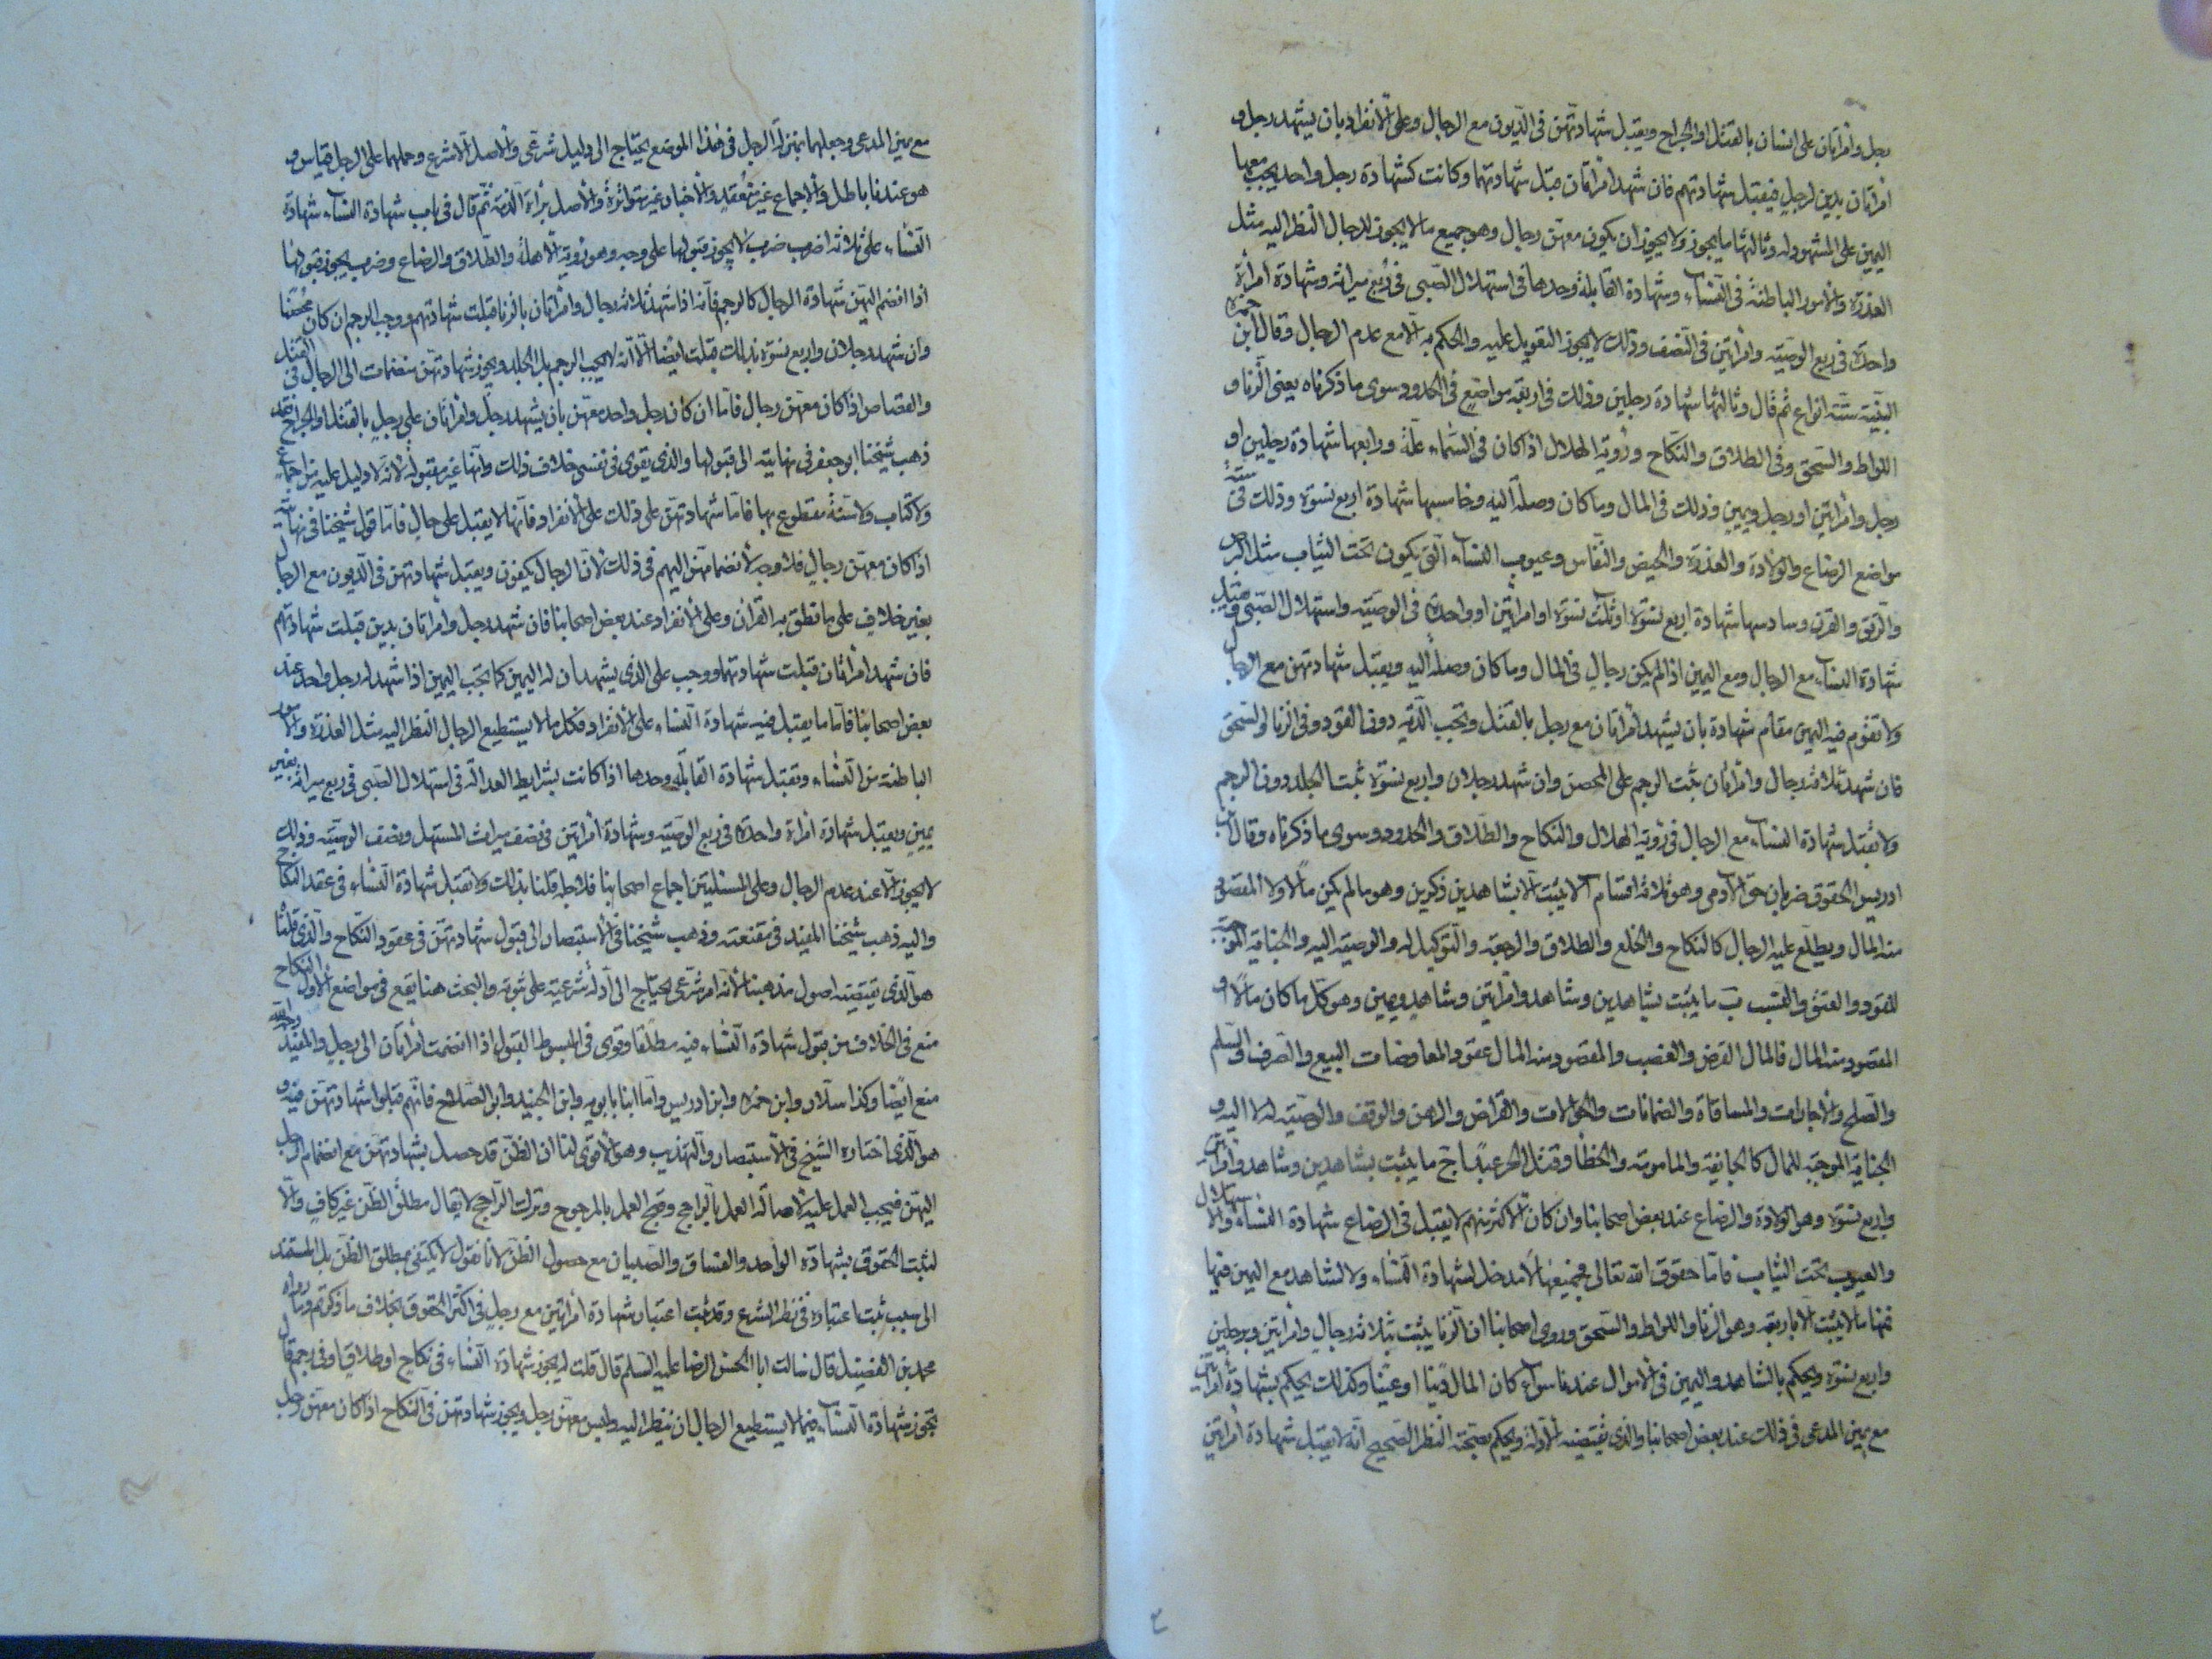 رجل وامرأتان على انسان بالقتل او الجراح ويقبل شهادتهن فى الديون مع الرجال وعلى الانفراد بان يشهد رجل و
امرأتان بدين لرجل فيقبل شهادتهم فان شهد امرأتان قبل شهادتهما وكانت كشهادة رجل واحد يجب معها
اليمين على المشهود له وثالثها ما يجوز ولا يجوز ان يكون معهن رجال وهو جميع ما لا يجوز للرجال النظر اليه مثل
العذرة والامور الباطنة فى النساء وشهادة القابلة وحدها فى استهلال الصبى فى ربع ميراثه وشهادة امرأة
واحدة فى ربع الوصية وامرأتين فى النصف وذلك لا يجوز التعويل عليه والحكم به الا مع عدم الرجال وقال ابن حمزة
البينة ستة انواع ثم قال وثالثها شهادة رجلين وذلك فى اربعة مواضع فى الحدود سوى ما ذكرناه يعنى الزنا و
اللواط والسحق وفى الطلاق والنكاح ورؤية الهلال اذا كان فى السماء علة ورابعها شهادة رجلين او
رجل وامرأتين او رجل ويمين وذلك فى المال وما كان وصلة اليه وخامسها شهادة اربع نسوة وذلك فى ستة
مواضع الرضاع والولادة والعذرة والحيض والنفاس وعيوب النساء التى يكون تحت الثياب مثل البرص
والرتق والقرن وسادسها شهادة اربع نسوة او ثلث نسوة او امرأتين او واحدة فى الوصية واستهلال الصبى ويقبل
شهادة النساء مع الرجال ومع اليمين اذا لم يكن رجال فى المال وما كان وصلة اليه ويقبل شهادتهن مع الرجال
ولا تقوم فيه اليمين مقام شهادة بان يشهد امرأتان مع رجل بالقتل وتجب الدية دون القود وفى الزنا والسحق
فان شهد ثلاثة رجال وامرأتان ثبت الرجم على المحصن وان شهد رجلان واربع نسوة ثبت الجلد دون الرجم
ولا تقبل شهادة النساء مع الرجال فى رؤية الهلال والنكاح والطلاق والحدود سوى ما ذكرناه وقال ابن
ادريس الحقوق ضربان حق الآدمى وهو ثلاثة اقسام آ لا يثبت الا بشاهدين ذكرين وهو ما لم يكن مالا ولا المقصود
منه المال ويطلع عليه الرجال كالنكاح والخلع والطلاق والرجعة والتوكيل له والوصية اليه والجناية الموجبة
للقود والعتق والنسب ب ما يثبت بشاهدين وشاهد وامرأتين وشاهد ويمين وهو كل ما كان مالا او
المقصود منه المال فالمال القرض والغصب والمقصود منه المال عقود المعاوضات البيع والصرف والسلم
والصلح والاجارات والمساقاة والضمانات والحوالات والقراض والرهن والوقف والوصية له لا اليه و
الجناية الموجبة للمال كالجايفة والمامومة والخطأ وقتل الحر عبدا ج ما يثبت بشاهدين وشاهد وامرأتين
واربع نسوة وهو الولادة والرضاع عند بعض اصحابنا وان كان الاكثر منهم لا يقبل فى الرضاع شهادة النساء والاستهلال
والعيوب تحت الثياب فاما حقوق الله تعالى فجميعها لا مدخل لشهادة النساء ولا لشاهد مع اليمين فيها
فمنها ما لا يثبت الا باربعة وهو الزنا واللواط والسحق وروى اصحابنا ان الزنا يثبت بثلاثة رجال وامرأتين وبرجلين
واربع نسوة ويحكم بالشاهد واليمين فى الاموال عندنا سواء كان المال دينا او عينا وكذلك يحكم بشهادة امرأتين
مع يمين المدعى فى ذلك عند بعض اصحابنا والذى تقتضيه الادلة ويحكم بصحته النظر الصحيح انه لا يقبل شهادة امرأتين
مع يمين المدعى وجعلهما بمنزلة الرجل فى هذا الموضع يحتاج الى دليل شرعى والاصل الا شرع وحملهما على الرجل قياس و
هو عندنا باطل والاجماع غير منعقد والاخبار غير متواترة والاصل براءة الذمة ثم قال فى باب شهادة النساء شهادة
النساء على ثلاثة اضرب ضرب لا يجوز قبولها على وجه وهو رؤية الاهلة والطلاق والرضاع وضرب يجوز قبولها
اذا انضم اليهن شهادة الرجال كالرجم فانه اذا شهد ثلاثة رجال وامرأتان بالزنا قبلت شهادتهم ووجب الرجم ان كان محصنا
وان شهد رجلان واربع نسوة بذلك قبلت ايضا الا انه لا يجب الرجم بل الجلد ويجوز شهادتهن منضمات الى الرجال فى القتل
والقصاص اذا كان معهن رجال فاما ان كان رجل واحد معهن بان يشهد رجل وامرأتان على رجل بالقتل او الجراح فقد
ذهب شيخنا ابو جعفر فى نهايته الى قبولها والذى يقوى فى نفسى خلاف ذلك وانها غير مقبولة لانه لا دليل عليه من اجماع
ولا كتاب ولا سنة مقطوع بها فاما شهادتهن على ذلك على الانفراد فانها لا يقبل على حال فاما قول شيخنا فى نهايته
اذا كان معهن رجال فلا وجه لانضمامهن اليهم فى ذلك لان الرجال يكفون ويقبل شهادتهن فى الديون مع الرجال
بغير خلاف على ما نطق به القرآن وعلى الانفراد عند بعض اصحابنا فان شهد رجل وامرأتان بدين قبلت شهادتهم
فان شهد امرأتان قبلت شهادتهما ووجب على الذى يشهدان له اليمين كما تجب اليمين اذا شهد له رجل واحد عند
بعض اصحابنا فاما ما يقبل فيه شهادة النساء على الانفراد فكل ما لا يستطيع الرجال النظر اليه مثل العذرة والامور
الباطنة من النساء وتقبل شهادة القابلة وحدها اذا كانت بشرايط العدالة فى استهلال الصبى فى ربع ميراثه بغير
يمين ويقبل شهادة امرأة واحدة فى ربع الوصية وشهادة امرأتين فى نصف ميراث المستهل ونصف الوصية وذلك
لا يجوز الا عند عدم الرجال وعلى المسئلتين اجماع اصحابنا فلاجله قلنا بذلك ولا تقبل شهادة النساء فى عقد النكاح
واليه ذهب شيخنا المفيد فى مقنعته وذهب شيخنا فى الاستبصار الى قبول شهادتهن فى عقود النكاح والذى قلنا
هو الذى يقتضيه اصول مذهبنا لانه امر شرعى يحتاج الى ادلة شرعية على ثبوته والبحث هنا يقع فى مواضع الاول النكاح
منع فى الخلاف من قبول شهادة النساء فيه مطلقا وقوى فى المبسوط القبول اذا انضمت امرأتان الى رجل والمفيد رحمه الله
منع ايضا وكذا سلار وابن حمزه وابن ادريس واما ابنا بابويه وابن الجنيد وابو الصلاح فانهم قبلوا شهادتهن فيه و
هو الذى اختاره الشيخ فى الاستبصار والتهذيب وهو الاقوى لنا ان الظن قد حصل بشهادتهن مع انضمام الرجل
اليهن فيجب العمل عليه لاصالة العمل بالراجح وقبح العمل بالمرجوح وترك الراجح لا يقال مطلق الظن غير كاف والا
لثبت الحقوق بشهادة الواحد والفساق والصبيان مع حصول الظن لانا نقول لا يكتفى بمطلق الظن بل المستند
الى سبب ثبت اعتباره فى نظر الشرع وقد ثبت اعتبار شهادة امرأتين مع رجل فى اكثر الحقوق بخلاف ما ذكرتم وما رواه
محمد بن الفضيل قال سالت ابا الحسن الرضا عليه السلم قال قلت له يجوز شهادة النساء فى نكاح او طلاق او فى رجم قال
تجوز شهادة النساء فيما لا يستطيع الرجال ان ينظر اليه وليس معهن رجل ويجوز شهادتهن فى النكاح اذا كان معهن رجل